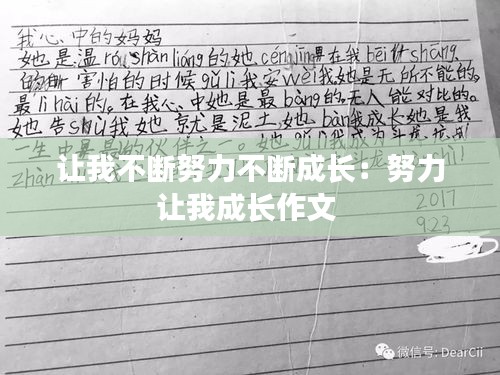 我心中的妈妈
她是温róu shàn liáng的,她céng jīng在我bēi shāng
的 害怕的时候gǔ lì我安wèi我她是无所不能的,
最lì hài的。在我心中她是最bàng的。无人能对比的。
她告shù我她京尤是泥土,她bàn我成长她是我
一生中 的伙伴之一。她gǔ lì我
zhàn
让我不断努力不断成长：努力
让我成长作文
2017
923
微信号: DearCii